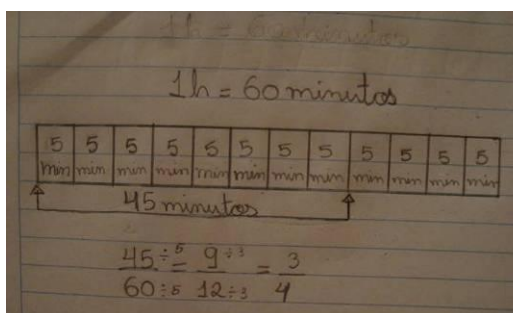 1h = 60 minutos
1h = 60 minutos
5 5 5 5 5 5 5 5 5 5 5 5
min min min min min min min min min min min min
45 minutos
45 ÷5 = 9 ÷3 = 3
60 ÷5 12 ÷3 4